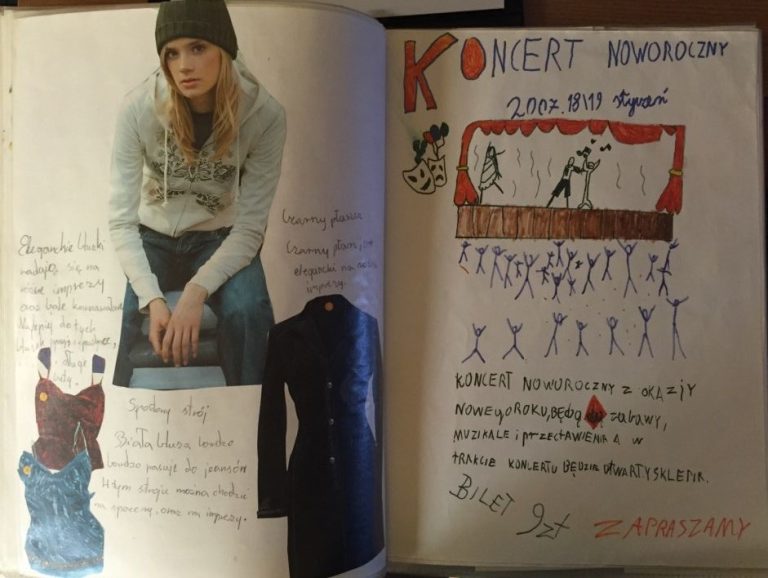 Eleganckie bluzki
nadają się na
różne imprezy
oraz bale karnawałowe
Najlepiej do tych
bluzek
długie
buty.
Czarny płaszcz
Czarny
elegancki na
imprezy.
Spodany strój
Biała bluza bardzo
bardzo pasuje do jeansów
W tym stroju można chodzić
na spacery, oraz na imprezy.
KONCERT NOWOROCZNY
2007. 18\19 styczeń
KONCERT NOWOROCZNY Z OKAZJY
NOWEGO ROKU, BĘDĄ zabawy,
MUZIKALE i przecławienia w
TRAKCIE KONCERTU BĘDZIE OTWARTY SKLEPIK.
BILET 9zł ZAPRASZAMY